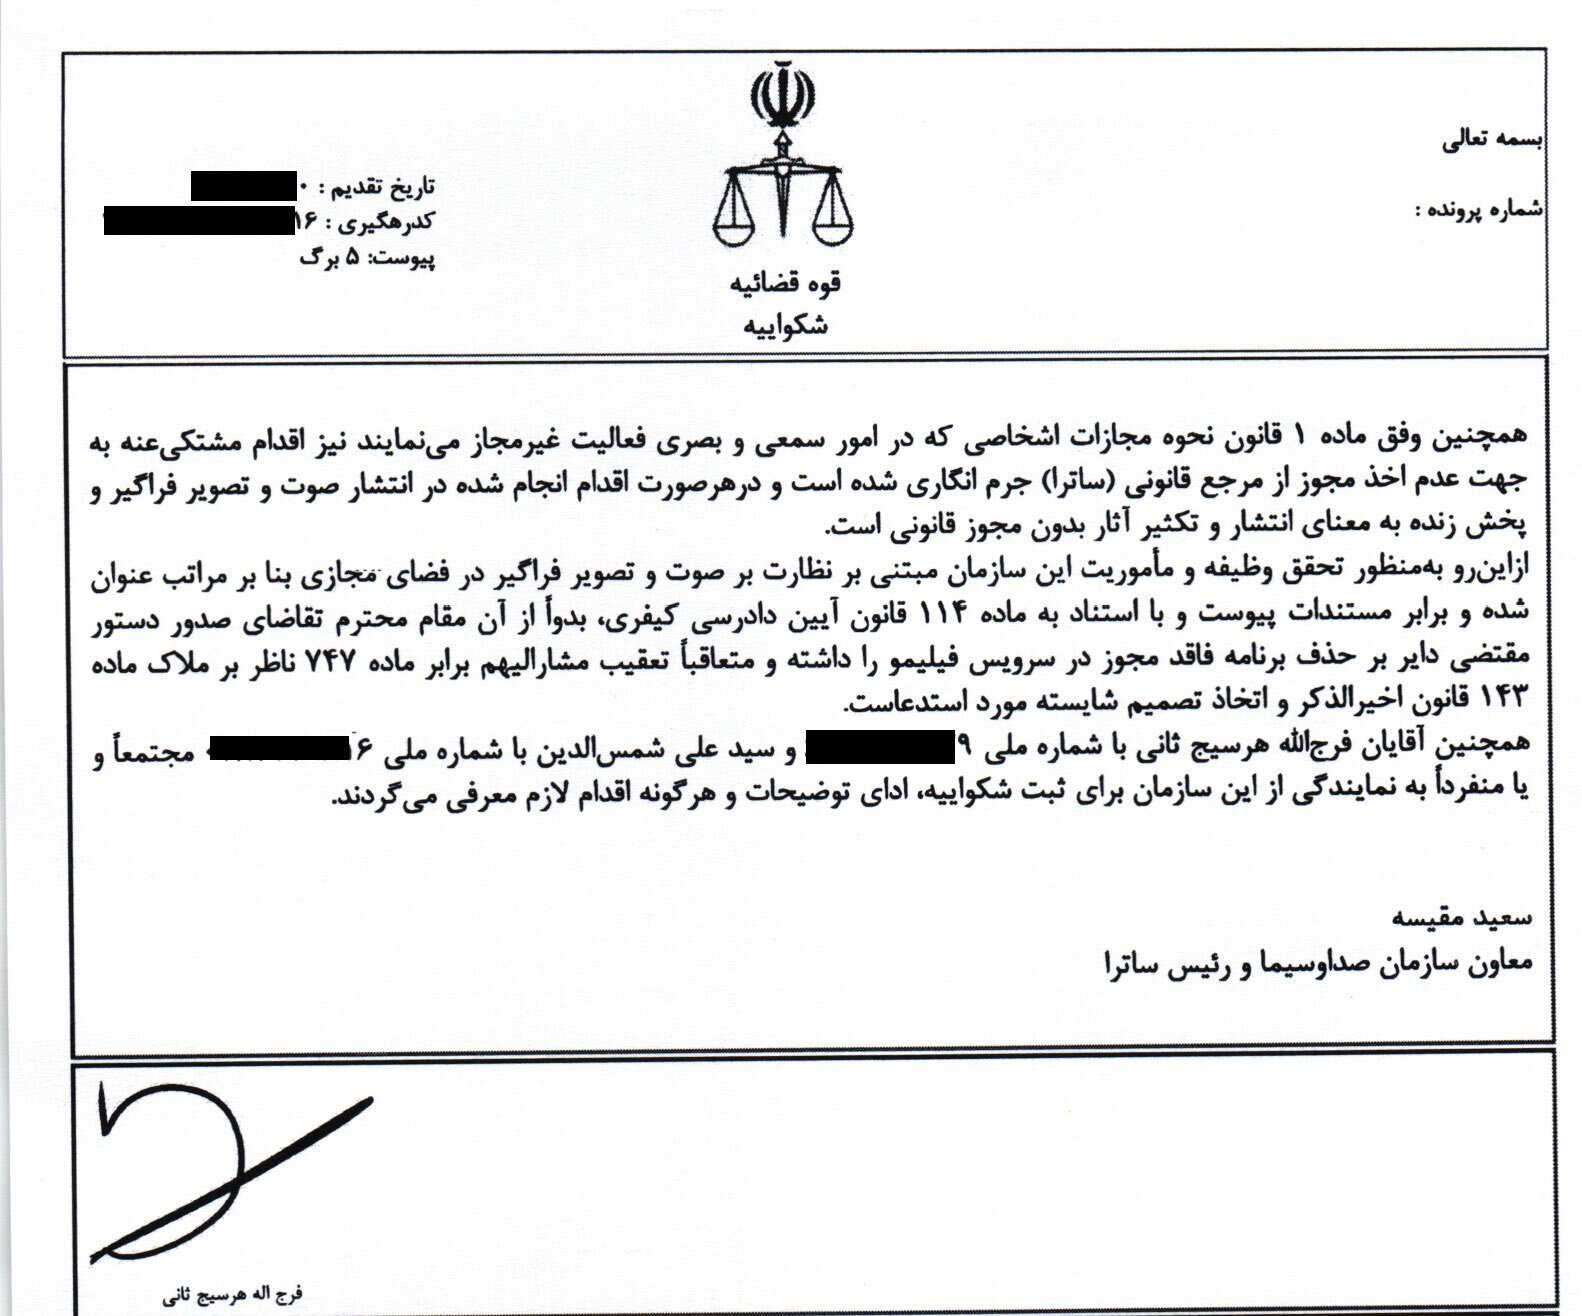 بسمه تعالی
شماره پرونده :
تاریخ تقدیم : ۰
کدرهگیری : ۱۶
پیوست: ۵ برگ
قوه قضائیه
شکواییه
همچنین وفق ماده ۱ قانون نحوه مجازات اشخاصی که در امور سمعی و بصری فعالیت غیرمجاز می‌نمایند نیز اقدام مشتکی‌عنه به
جهت عدم اخذ مجوز از مرجع قانونی (ساترا) جرم انگاری شده است و درهرصورت اقدام انجام شده در انتشار صوت و تصویر فراگیر و
پخش زنده به معنای انتشار و تکثیر آثار بدون مجوز قانونی است.
ازاین‌رو به‌منظور تحقق وظیفه و مأموریت این سازمان مبتنی بر نظارت بر صوت و تصویر فراگیر در فضای مجازی بنا بر مراتب عنوان
شده و برابر مستندات پیوست و با استناد به ماده ۱۱۴ قانون آیین دادرسی کیفری، بدواً از آن مقام محترم تقاضای صدور دستور
مقتضی دایر بر حذف برنامه فاقد مجوز در سرویس فیلیمو را داشته و متعاقباً تعقیب مشارالیهم برابر ماده ۷۴۷ ناظر بر ملاک ماده
۱۴۳ قانون اخیرالذکر و اتخاذ تصمیم شایسته مورد استدعاست.
همچنین آقایان فرج‌الله هرسیج ثانی با شماره ملی ۹ و سید علی شمس‌الدین با شماره ملی ۱۶ مجتمعاً و
یا منفرداً به نمایندگی از این سازمان برای ثبت شکواییه، ادای توضیحات و هرگونه اقدام لازم معرفی می‌گردند.
سعید مقیسه
معاون سازمان صداوسیما و رئیس ساترا
فرج اله هرسیج ثانی